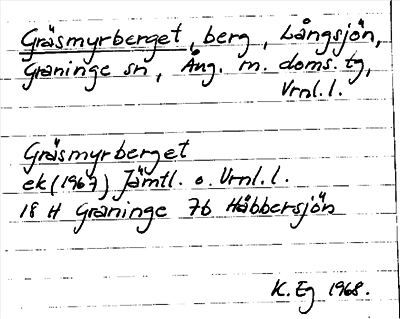 Gräsmyrberget, berg, Långsjön,
Graninge sn, Ång. m. doms. tg,
Vrnl.l.
Gräsmyrberget
ek (1967) Jämtl. o. Vrnl.l.
18 H Graninge 7b Håbbersjön
K. Eg 1968.